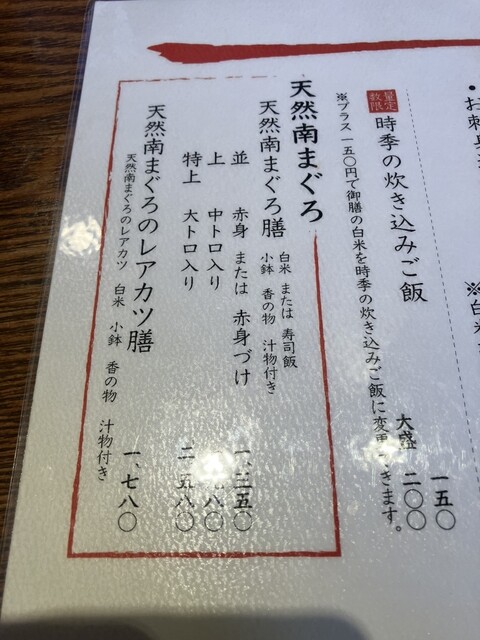 ・お刺身
※白米
数量限定
時季の炊き込みご飯 一五〇
大盛 二〇〇
※プラス一五〇円で御膳の白米を時季の炊き込みご飯に変更できます。
天然南まぐろ
天然南まぐろ膳
白米 または 寿司飯
小鉢 香の物 汁物付き
並 赤身 または 赤身づけ 一、三五〇
上 中トロ入り 八〇
特上 大トロ入り 二、五八〇
天然南まぐろのレアカツ膳 一、七八〇
天然南まぐろのレアカツ 白米 小鉢 香の物 汁物付き